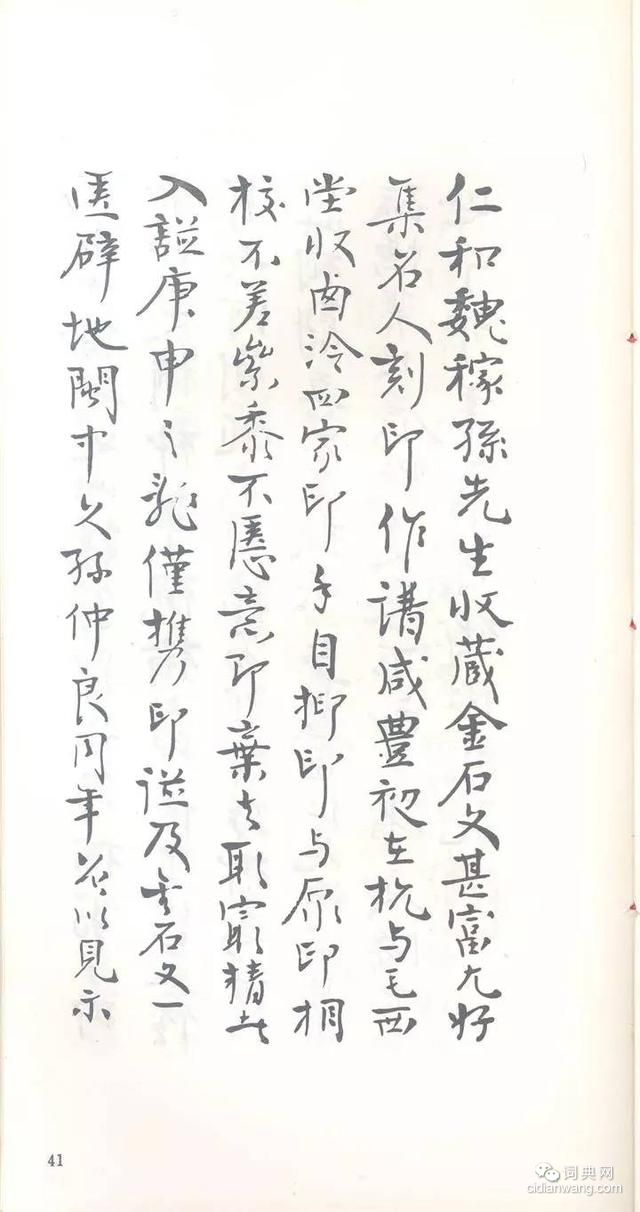 仁和魏稼孫先生收藏金石文甚富尤好
集名人刻印作譜咸豐初在杭与毛西
堂收西泠四家印手自抑印与原印相
校不差絫黍不愜意即棄去取寂精者
入譜庚申之亂僅携印譜及金石文一
匧辟地閩中久孫仲良同年以見示
41
词典网
cidianwang.com